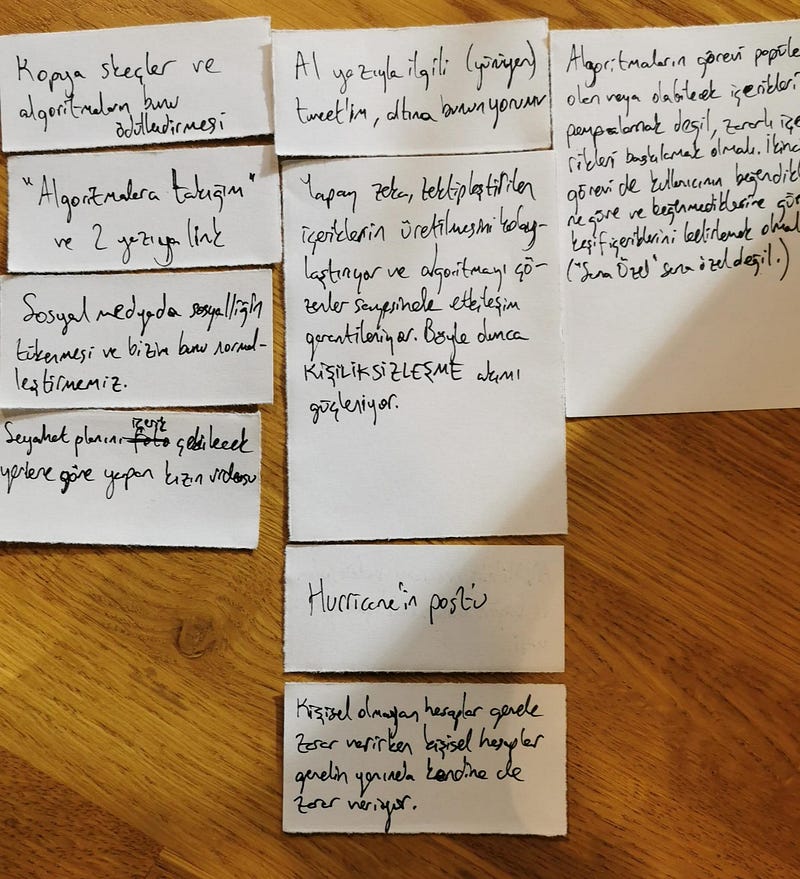 Kopya skeçler ve
algoritmaların bunu
ödüllendirmesi
"Algoritmalara takığım"
ve 2 yazıya link
Sosyal medyada sosyalliğin
tükenmesi ve bizim bunu normal-
leştirmemiz.
Seyahat planını içerik çekilecek
yerlere göre yapan kızın videosu
AI yazıyla ilgili (yürüyen)
tweet'im, altına bunun yorumu
Yapay zeka, tektipleştirilen
içeriklerin üretilmesini kolay-
laştırıyor ve algoritmayı gö-
zenler sayesinde etkileşim
garantileniyor. Böyle olunca
KİŞİLİKSİZLEŞME akımı
güçleniyor.
Hurricane'in post'u
Kişisel olmayan hesaplar genele
zarar verirken kişisel hesaplar
genelin yanında kendine de
zarar veriyor.
Algoritmaların görevi popüle
olan veya olabilecek içerikleri
pompalamak değil, zararlı içe
rikleri baskılamak olmalı. İkinc
görevi de kullanıcının beğendikl
ne göre ve beğenmediklerine gör
keşif içeriklerini belirlemek olmal
("Sana Özel" sana özel değil.)